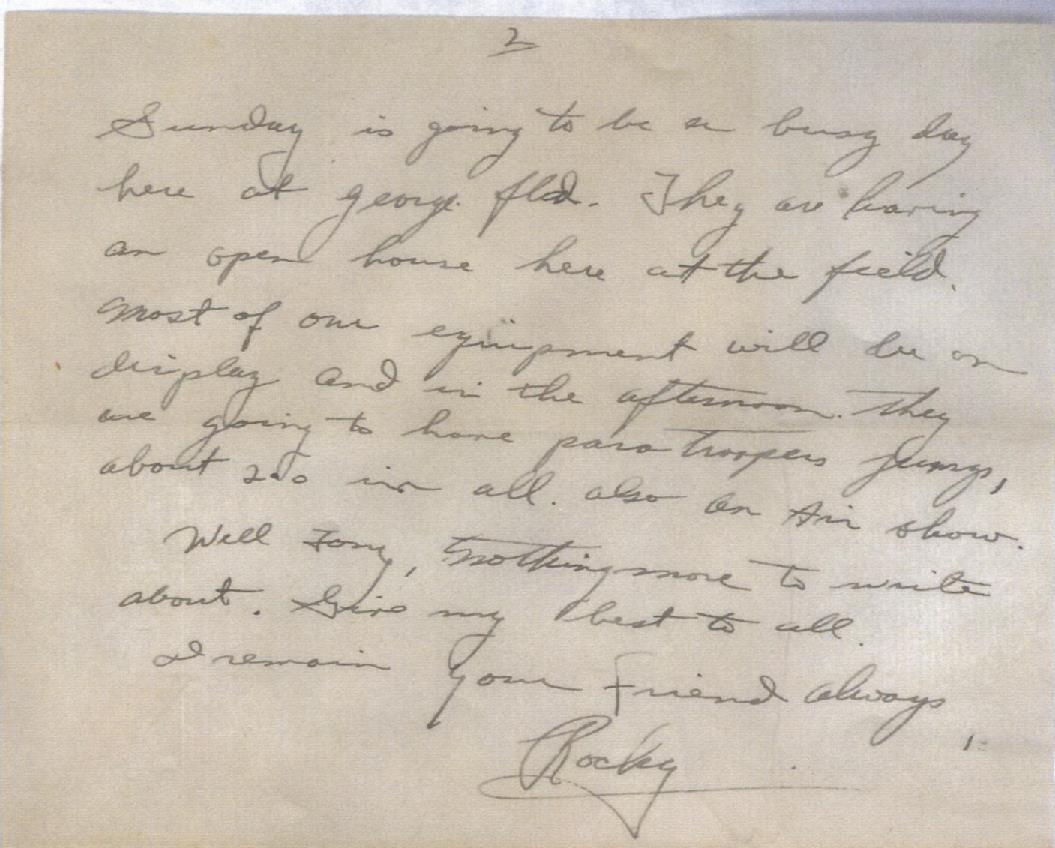 2
Sunday is going to be a busy day
here at george fld. They are having
an open house here at the field.
most of our equipment will be on
display and in the afternoon. They
are going to have para troopers jump,
about 200 in all. also an Air show.
Well Tony, nothing more to write
about. Give my best to all.
I remain your Friend always
Rocky